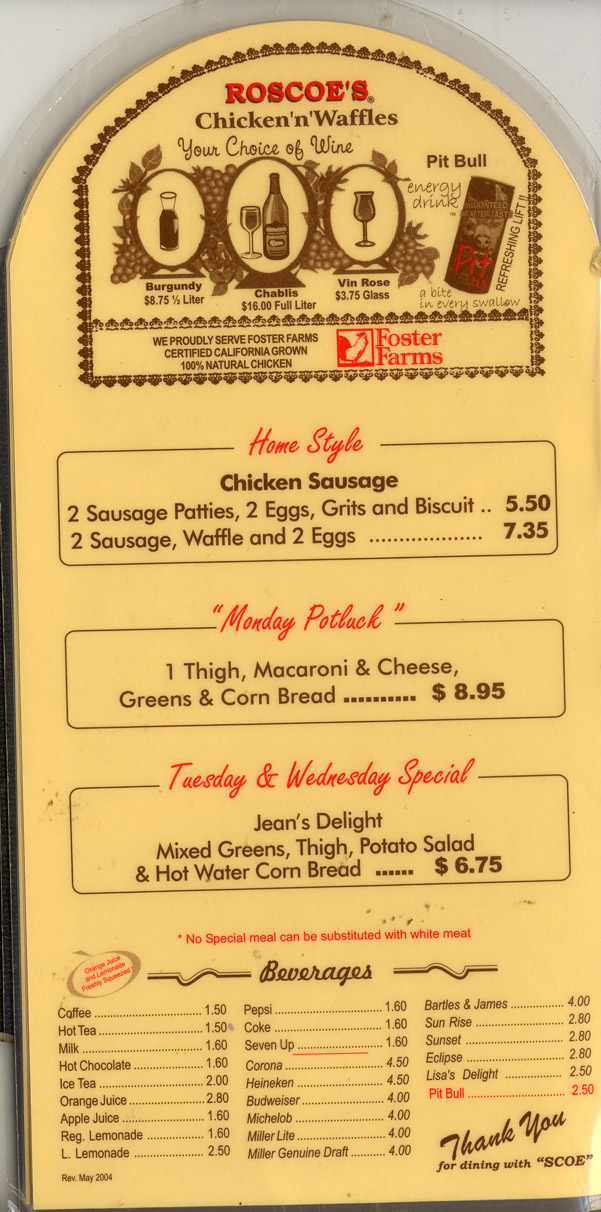 ROSCOE'S®
Chicken'n'Waffles
Your Choice of Wine
Pit Bull
energy
drink™
GUARANTEED
NO AFTER TASTE
Pit
REFRESHING LIFT!!
a bite
in every swallow
Burgundy
$8.75 ½ Liter
Chablis
$16.00 Full Liter
Vin Rose
$3.75 Glass
WE PROUDLY SERVE FOSTER FARMS
CERTIFIED CALIFORNIA GROWN
100% NATURAL CHICKEN
Foster
Farms
Home Style
Chicken Sausage
2 Sausage Patties, 2 Eggs, Grits and Biscuit .. 5.50
2 Sausage, Waffle and 2 Eggs ................... 7.35
"Monday Potluck "
1 Thigh, Macaroni & Cheese,
Greens & Corn Bread .......... $ 8.95
Tuesday & Wednesday Special
Jean's Delight
Mixed Greens, Thigh, Potato Salad
& Hot Water Corn Bread ...... $ 6.75
* No Special meal can be substituted with white meat
Orange Juice
and Lemonade
Freshly Squeezed!
Beverages
Coffee ........ 1.50
Hot Tea ........ 1.50
Milk ........ 1.60
Hot Chocolate ........ 1.60
Ice Tea ........ 2.00
Orange Juice ........ 2.80
Apple Juice ........ 1.60
Reg. Lemonade ........ 1.60
L. Lemonade ........ 2.50
Pepsi ........ 1.60
Coke ........ 1.60
Seven Up ........ 1.60
Corona ........ 4.50
Heineken ........ 4.50
Budweiser ........ 4.00
Michelob ........ 4.00
Miller Lite ........ 4.00
Miller Genuine Draft ........ 4.00
Bartles & James ........ 4.00
Sun Rise ........ 2.80
Sunset ........ 2.80
Eclipse ........ 2.80
Lisa's Delight ........ 2.50
Pit Bull ........ 2.50
Thank You
for dining with "SCOE"
Rev. May 2004